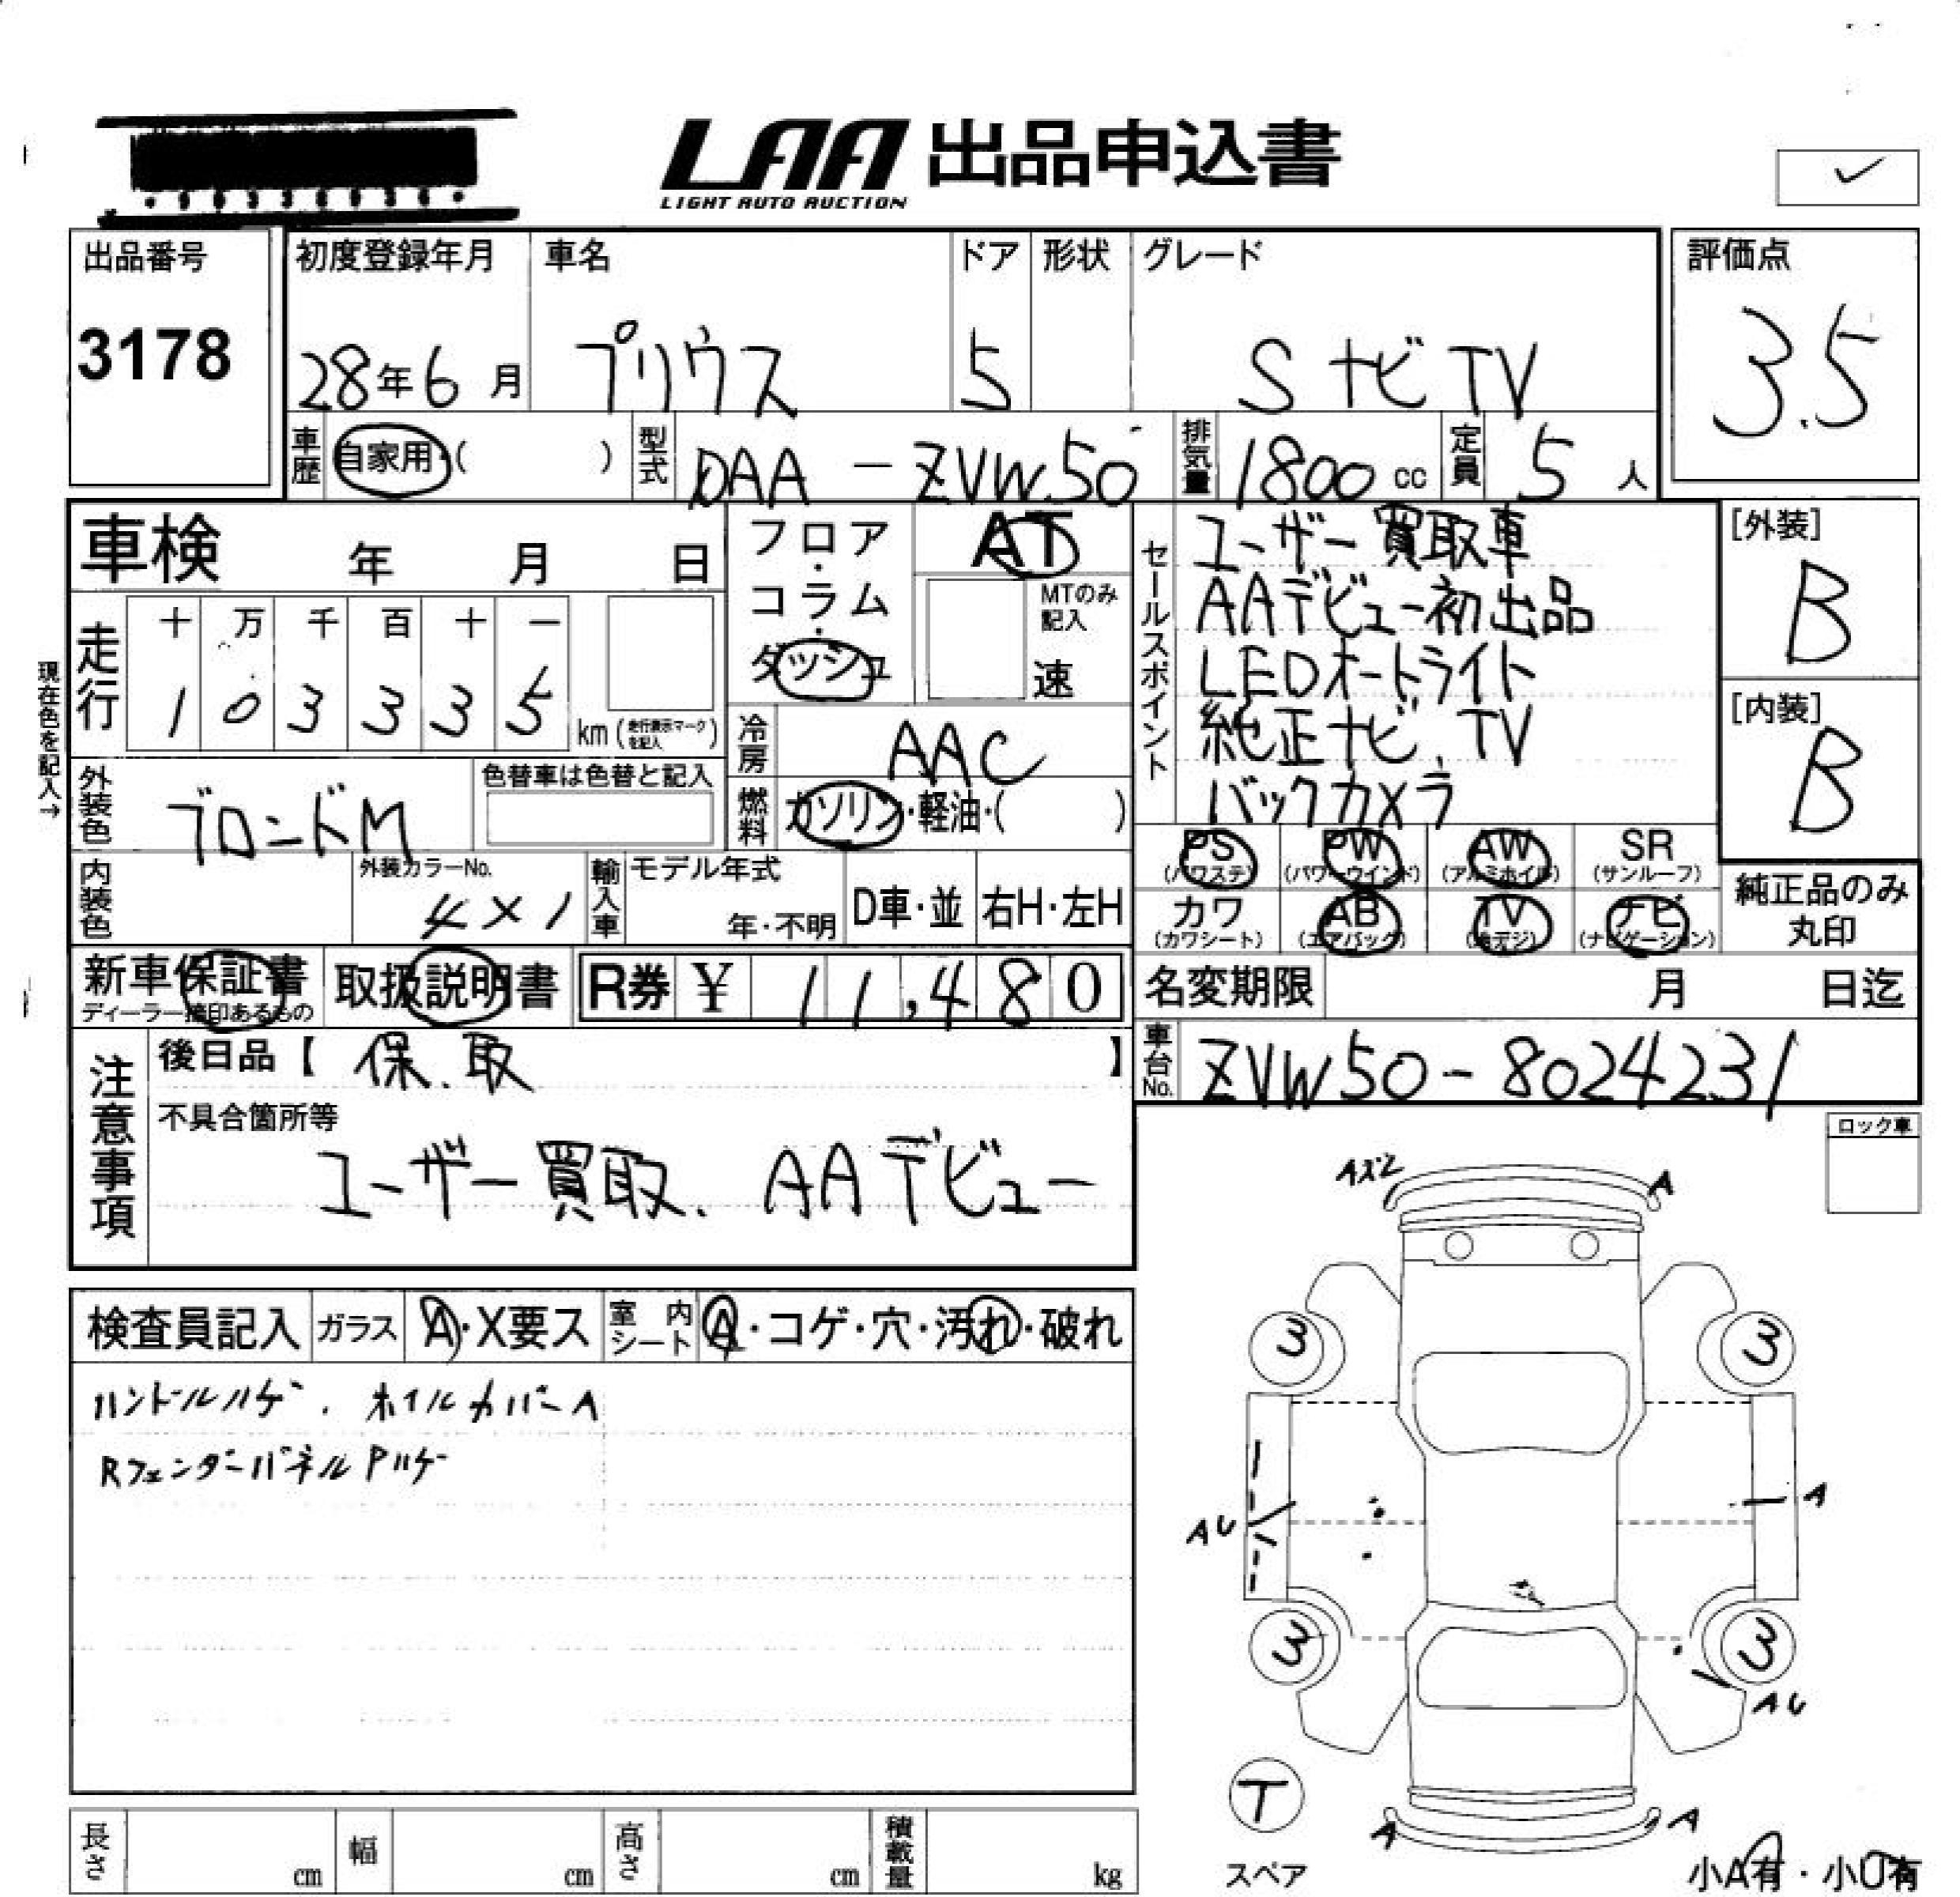 LAA 出品申込書
LIGHT AUTO AUCTION
✓
出品番号 3178
初度登録年月 28年6月
車名 プリウス
ドア 5
形状
グレード S ナビ TV
評価点 3.5
車歴 自家用・( )
型式 DAA - ZVW50
排気量 1800 cc
定員 5 人
車検 年 月 日
フロア・コラム・ダッシュ
AT
MTのみ記入
速
セールスポイント
ユーザー買取車
AAデビュー初出品
LEDオートライト
純正ナビ、TV
バックカメラ
[外装] B
[内装] B
現在色を記入→
走行 十 万 千 百 十 一
1 0 3 3 3 5 km (走行表示マークを記入)
冷房 AAC
外装色 ブロンドM
色替車は色替と記入
燃料 ガソリン・軽油・( )
内装色
外装カラーNo. 4X1
輸入車 モデル年式 年・不明
D車・並 右H・左H
PS (パワステ) PW (パワーウインド) AW (アルミホイル) SR (サンルーフ)
カワ (カワシート) AB (エアバック) TV (地デジ) ナビ (ナビゲーション)
純正品のみ丸印
新車保証書
ディーラー捺印あるもの
取扱説明書
R券 ¥ 11,480
名変期限 月 日迄
車台No. ZVW50-8024231
注意事項
後日品【 保、取 】
不具合箇所等
ユーザー買取、AAデビュー
ロック車
検査員記入 ガラス A・X要ス 室内シート A・コゲ・穴・汚れ・破れ
ハンドルハゲ、ホイルカバーA
RフェンダーパネルPハゲ
A
3 3
AU A
3 3
AU
T
スペア
A A
長さ cm 幅 cm 高さ cm 積載量 kg
小A有・小U有